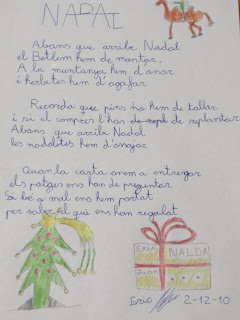 NADAL
Abans que arribe Nadal
el Betlem hem de montar.
A la muntanya hem d'anar
i herbetes hem d'agafar
Recorda que pins no hem de tallar
i si el compres l'has de replantar
Abans que arribe Nadal
les nadaletes hem d'assajar
Quan la carta anem a entregar
els patges ens han de preguntar
Si bé o mal ens hem portat
per saber el què ens han regalat
Eric NALDA
Juan
Eric 2-12-10